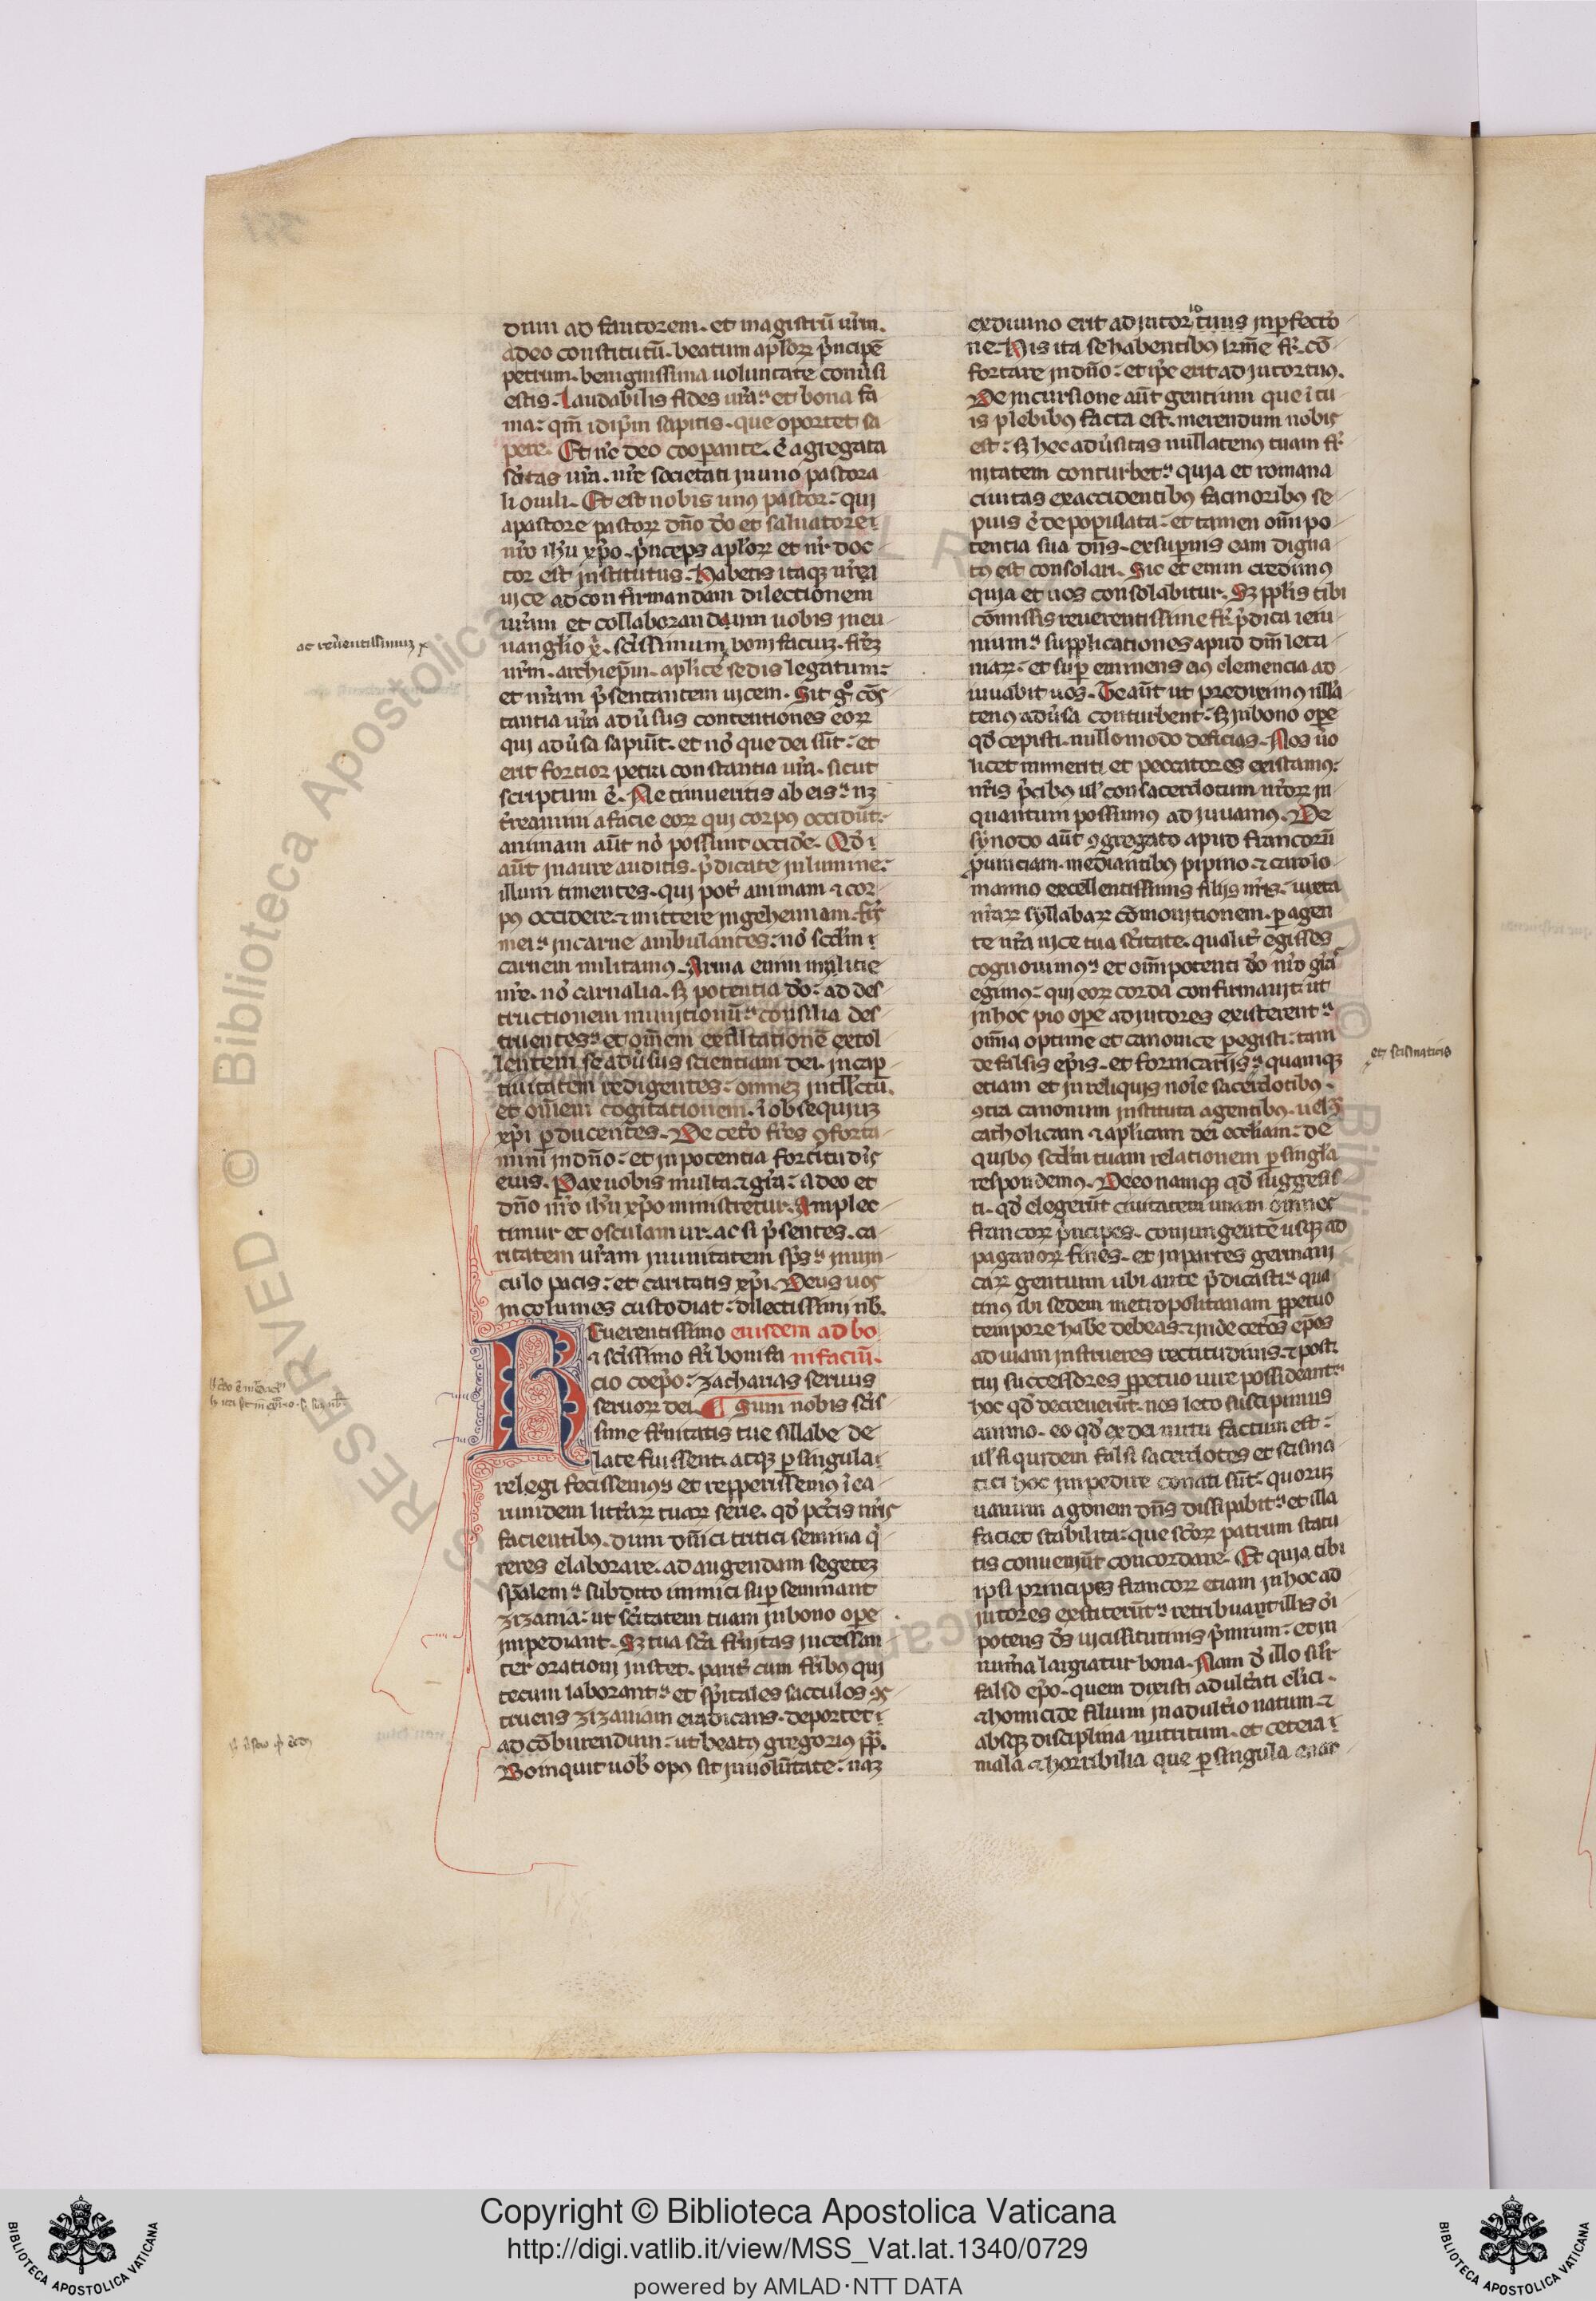 dum ad fautorem. et magistrū ur̄m.
adeo constitutū. beatum apl'oꝝ p̄ncipē
petrum. benignissima uoluntate conuersi
estis. Laudabilis fides ur̄a. et bona fa
ma: qm̄ idip̄m sapitis. que oportet sa
pere. Et nc̄ deo cooperante. ē agregata
sc̄itas ur̄a. nr̄e societati in uno pastora
li ouili. Et est nobis unus pastor: qui
apastore pastoꝝ dn̄o d̄o et saluatore
nr̄o ih̄u xp̄o. p̄nceps apl'oꝝ et nr̄ doc
tor est institutus. Habetis itaqꝫ nr̄am
uice ad confirmandam dilectionem
ur̄am et collaborandum uobis in eu
uanglio xp̄i. sc̄issimum bonifacium. frēꝫ
nr̄m. archiep̄m. aplice sedis legatum:
et nr̄am p̄sentantem uicem. Sit gͦ cōs
tantia ur̄a aduersus contentiones eoꝝ
qui aduersa sapiūt. et nō que dei sūt: et
erit fortior petra constantia ur̄a. sicut
scriptum ē. Ne timueritis ab eis: nꝫ
terreamini a facie eoꝝ qui corpus occidūt:
animam aūt nō possunt occidere. Qd̄
aūt in aure auditis. p̄dicate in lumine:
illum timentes. qui pot̄ animam ⁊ cor
pus occidere ⁊ mittere in gehennam. frēs
mei: in carne ambulantes: nō scdm̄
carnem militamus. Arma enim militie
nr̄e. nō carnalia. sꝫ potentia d̄o: ad des
tructionem munitionū: consilia des
truentes: et om̄em exaltationē extol
lentem se aduersus scientiam dei. in cap
tiuitatem redigentes: omnem intll'ctū.
et om̄em cogitationem. ī obsequium
xp̄i perducentes. De cetero frēs conforta
mini in dn̄o: et in potentia fortitudinis
eius. Pax uobis multa ⁊ gr̄a: a deo et
dn̄o nr̄o ih̄u xp̄o ministretur. Amplec
timur et osculamur. ac si p̄sentes. ca
ritatem ur̄am in unitatem sp̄s: in uin
culo pacis: et caritatis xp̄i. Deus uos
incolumes custodiat: dilectissimi nb̄.
Reuerentissimo eiusdem ad bo
⁊ sc̄issimo frī bonifa nifaciū.
cio coep̄o: zacharias seruus
seruoꝝ dei. ¶ Sum nobis sc̄is
sime fr̄nitatis tue sillabe de
late fuissent. atqꝫ per singula
relegi fecissemus: et repperissemus ī ea
rumdem litteraꝝ tuaꝝ serie. qd̄ pctis nr̄is
facientibus. dum dn̄ici tritici semina q̄
reres elaborare. ad augendam segetem
sp̄alem: subdito inimici superseminant
zizania: ut sc̄itatem tuam in bono opere
impediant. Sꝫ tua sc̄a fr̄nitas incessan
ter orationi instet. pariter cum fr̄ibus qui
tecum laborant: et sp̄itales sacculos cōs
truens zizaniam eradicans. deportet
ad cōburendum: ut beatus gregorius pp̄.
Bon inquit uob̄ opus sit in uolūtate: naꝫ
ex diuino erit adiutorio tuus in perfectio
ne. His ita se habentibus kr̄me fr̄. cō
fortare in dn̄o: et ip̄e erit adiutor tuus.
De incursione aūt gentium que ī tu
is plebibus facta est. merendum nobis
est: sꝫ hec aduersitas nullatenus tuam fr̄
nitatem conturbet: quia et romana
ciuitas ex accidentibus facinoribus se
pius ē depopulata: et tamen omīpo
tencia sua dn̄s. exsupernis eam digna
tus est consolari. Sic et enim credimus
quia et uos consolabitur. Sꝫ pplis tibi
cōmissis reuerentissime fr̄. p̄dica ieiu
nium: supplicationes apud dn̄m leta
niaꝝ: et super eminens eius clemencia ad
iuuabit uos. Te aūt ut prediximus nulla
tenus aduersa conturbent: sꝫ in bono opere
qd̄ cepisti. nullo modo deficias. Nos uero
licet immeriti et peccatores existamus:
nr̄is p̄cibus ul' consacerdotum nr̄oꝝ in
quantum possumus adiuuamus. De
synodo aūt congregato apud francorū
prouinciam. mediantibus pipino ⁊ carolo
manno excellentissimis filijs nr̄is: iuxta
nr̄aꝝ syllabaꝝ cōmonitionem. per agen
te nr̄a uice tua sc̄itate. qualiter egisses
cognouimus: et omīpotenti d̄o nr̄o gr̄a
egimus: qui eoꝝ corda confirmauit ut
in hoc pio opere adiutores existerent:
om̄ia optime et canonice peregisti: tam
de falsis ep̄is. et fornicarijs: quamqꝫ
etiam et in reliquis noīe sacerdotibus.
contra canonum instituta agentibus. uel
catholicam ⁊ apl'icam dei eccl'iam: de
quibus scdm̄ tuam relationem per singula
respondemus. De eo namqꝫ qd̄ suggessis
ti. qd̄ elegerūt ciuitatem unam omnes
francoꝝ p̄ncipes. coniungentē usqꝫ ad
paganoꝝ fines. et in partes germani
caꝝ gentium ubi ante p̄dicasti: qua
tinus ibi sedem metropolitanam perpetuo
tempore habere debeas: ⁊ inde ceteros ep̄os
ad uiam instrueres rectitudinis. ⁊ post
tui successores perpetuo iure possideant:
hoc qd̄ decreuerūt. nos leto suscipimus
animo. eo qd̄ ex dei nutu factum est:
ul' si quidem falsi sacerdotes et scisma
tici hoc impedire conati sūt: quorum
uanum agonem dn̄s dissipabit: et illa
faciet stabilita: que sc̄oꝝ patrum statu
tis conueniūt concordare. Et quia tibi
ipsi principes francoꝝ etiam in hoc ad
iutores extiterūt: retribuant illis oī
potens d̄s uicissitutinis p̄mium: et in
numera largiatur bona. Nam d̄ illo silr
falso ep̄o. quem dixisti adulterati cl'ici.
⁊ homicide filium in adulterio natum. ⁊
absqꝫ disciplina nutritum. et cetera
mala ⁊ horribilia que per singula enar
ac reuerentissimuꝫ
et scismaticis
Copyright © Biblioteca Apostolica Vaticana
http://digi.vatlib.it/view/MSS_Vat.lat.1340/0729
powered by AMLAD·NTT DATA
BIBLIOTECA APOSTOLICA VATICANA
BIBLIOTECA APOSTOLICA VATICANA